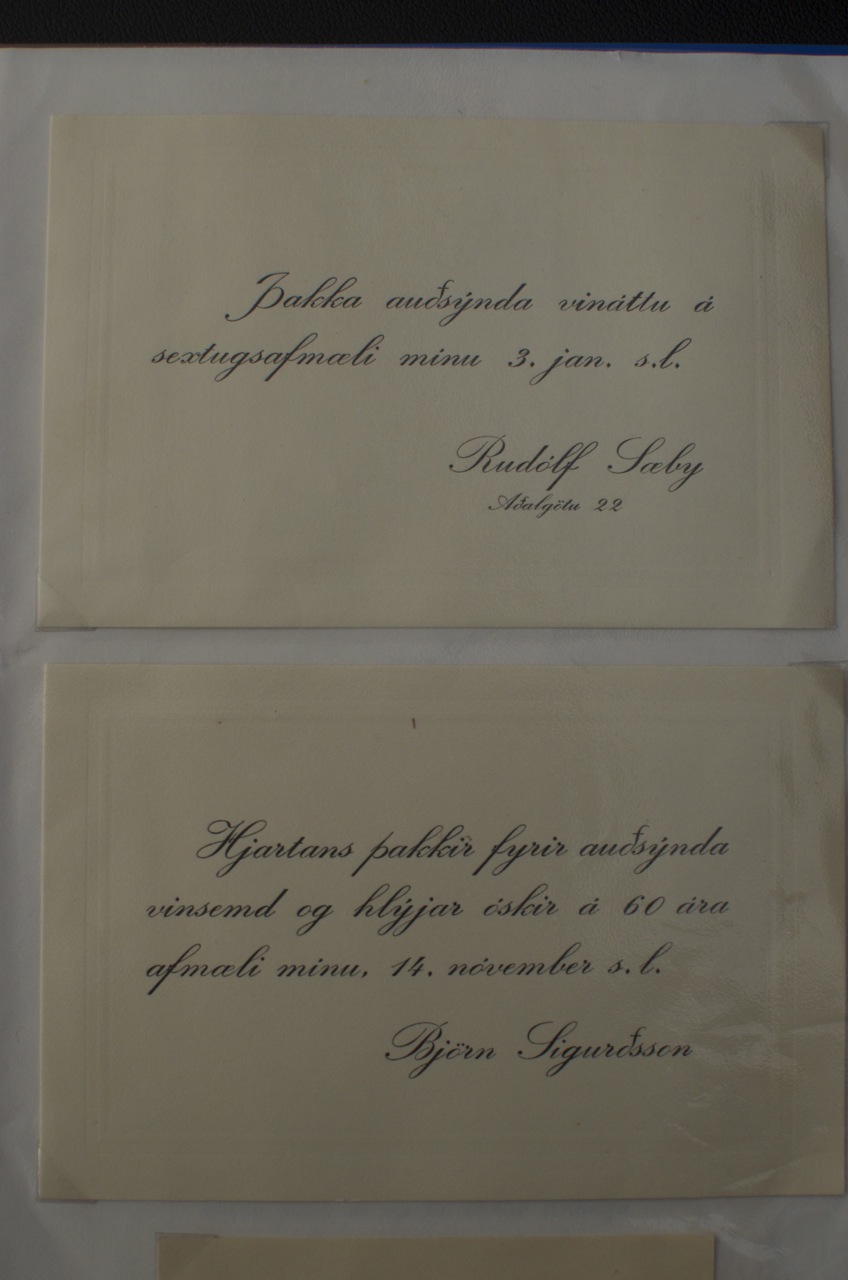 Þakka auðsýnda vináttu á
sextugsafmæli mínu 3. jan. s.l.
Rudólf Sæby
Aðalgötu 22
Hjartans þakkir fyrir auðsýnda
vinsemd og hlýjar óskir á 60 ára
afmæli mínu, 14. nóvember s.l.
Björn Sigurðsson